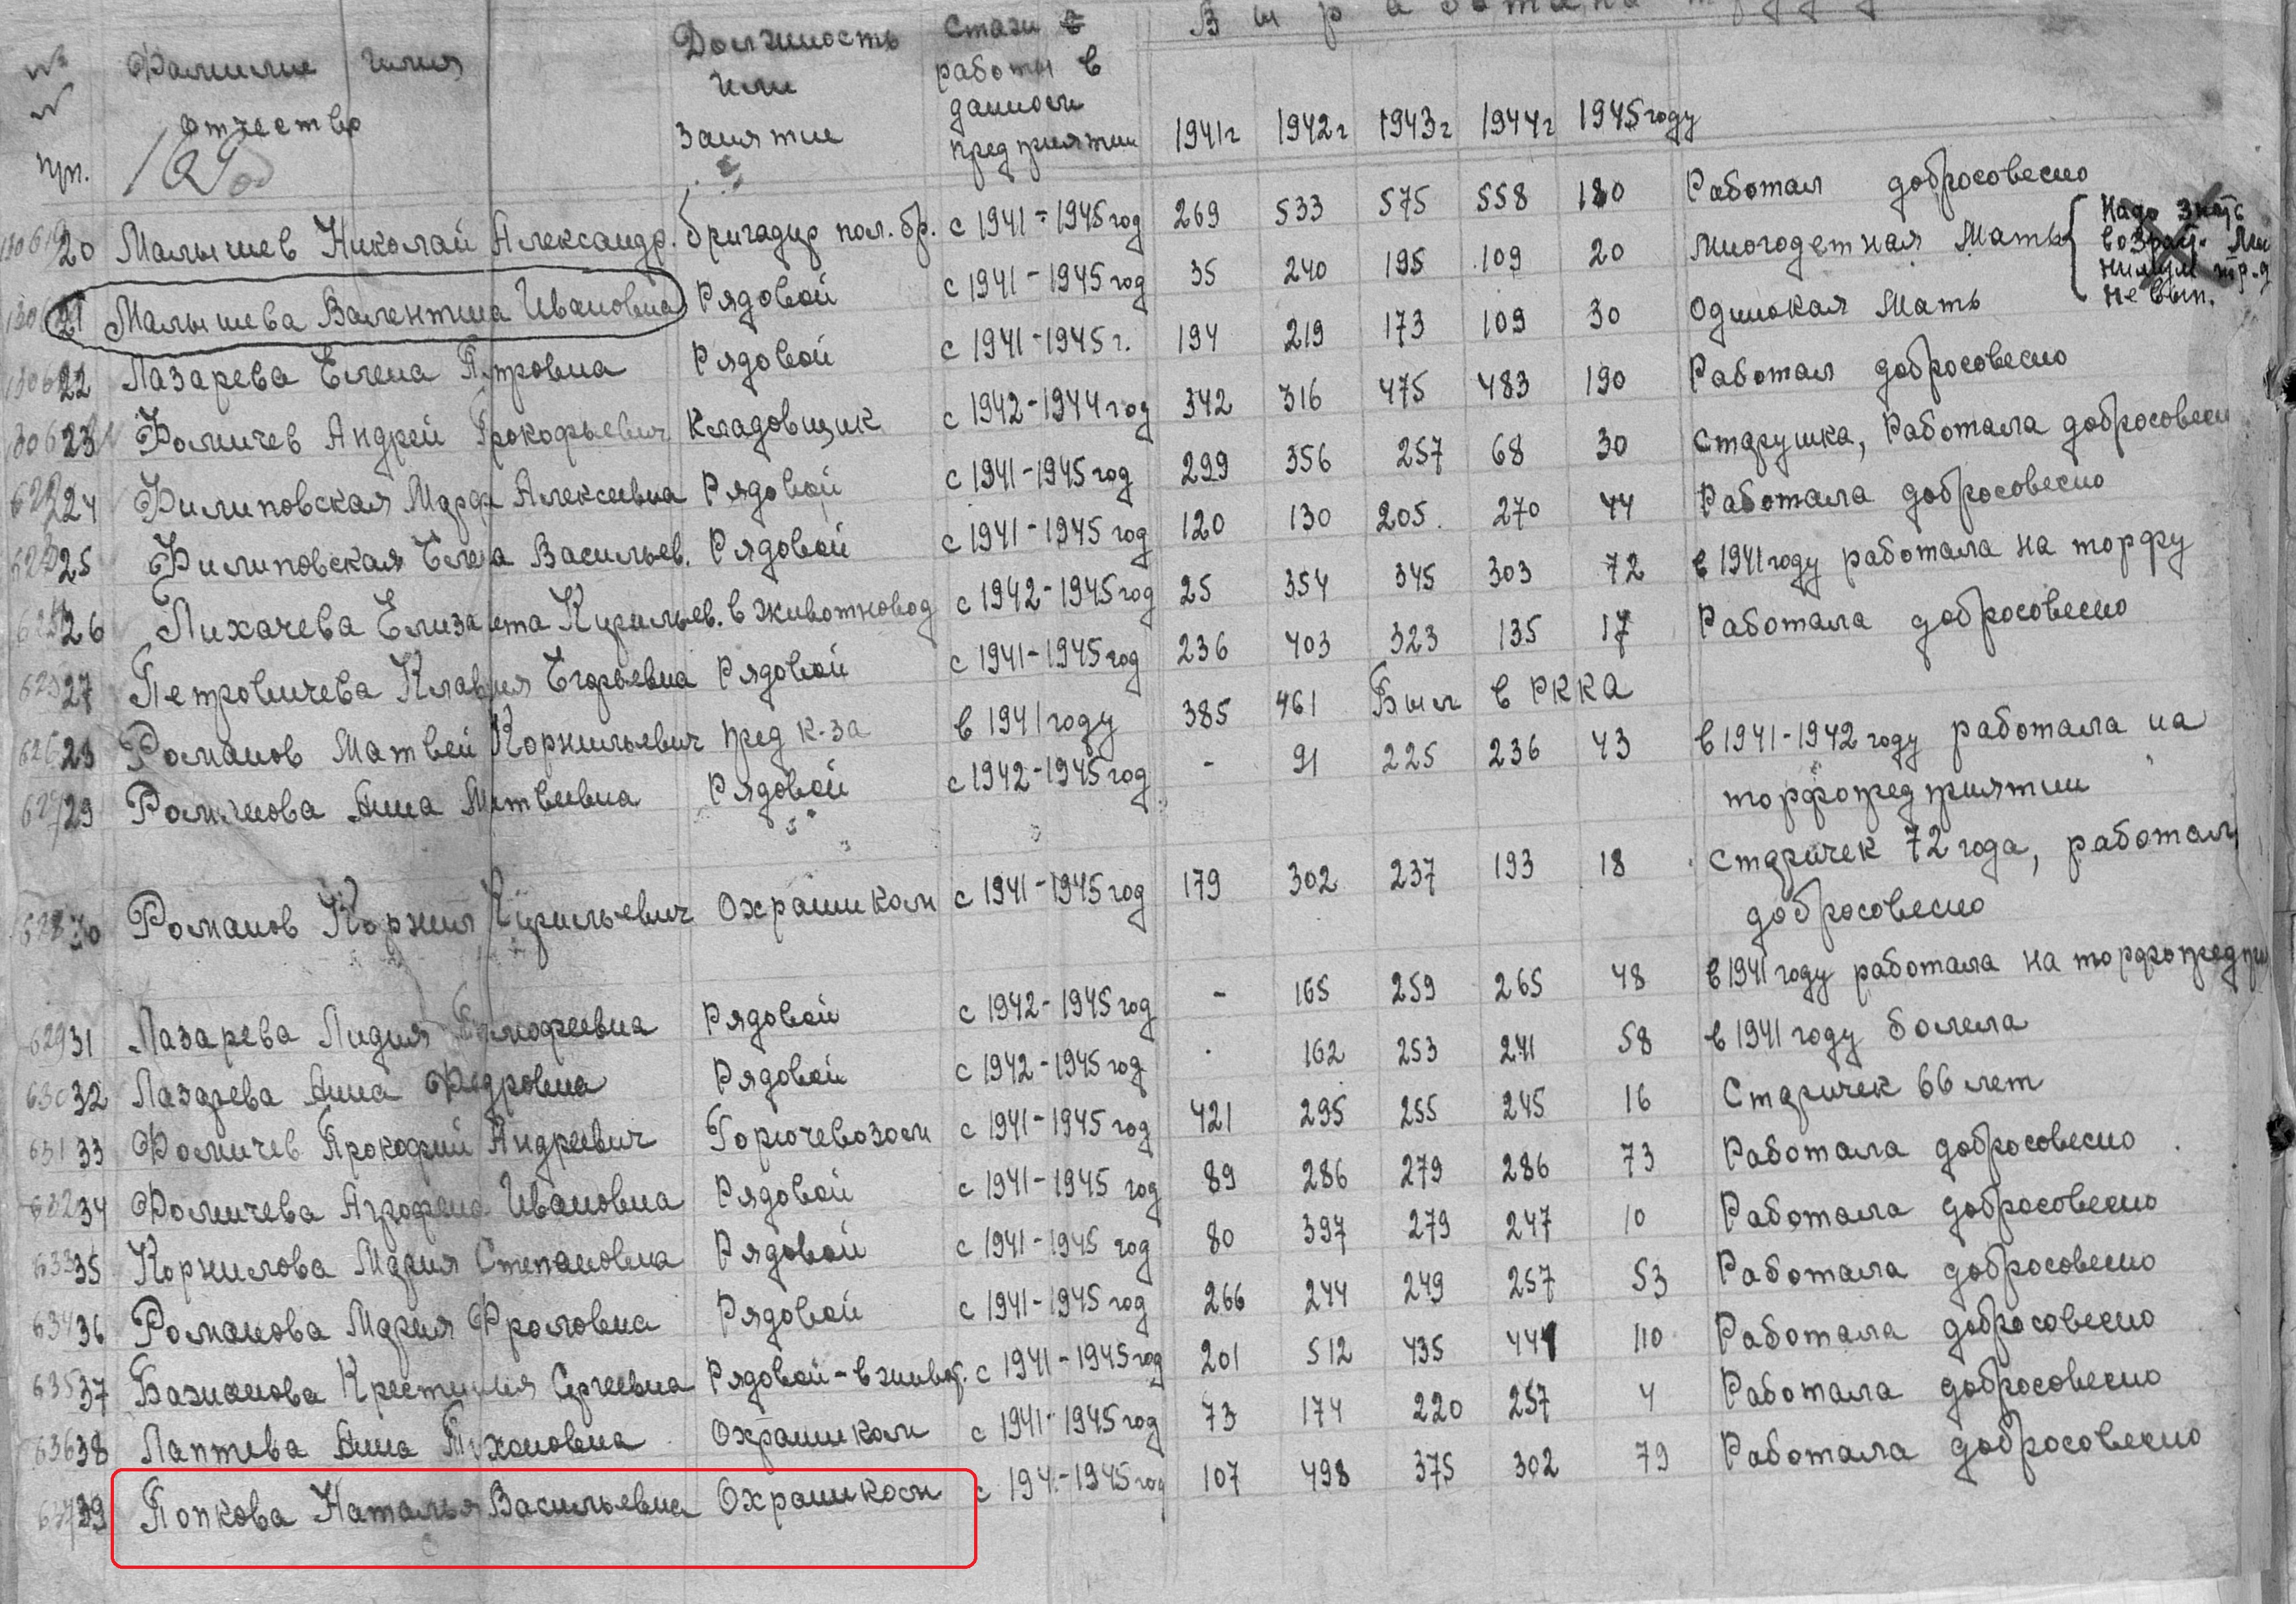 Выработано труд
№ Фамилие имия Должность Стаж работы в
№ отчество или данном
пп. занятие предприятии 1941г 1942г 1943г 1944г 1945 году
20 Малышев Николай Александр. бригадир пол. бр. с 1941-1945 год 269 533 575 558 180 Работал добросовесно
21 Малышева Валентина Ивановна Рядовой с 1941-1945 год 35 240 195 109 20 Многодетная Мать Надо знать возраст. Ми нимум тр.д не вып.
22 Лазарева Елена Петровна Рядовой с 1941-1945 г. 194 219 173 109 30 Одинокая Мать
23 Фомичев Андрей Прокофьевич Кладовщик с 1942-1944 год 342 316 475 483 190 Работал добросовесно
24 Филиповская Марфа Алексеевна Рядовой с 1941-1945 год 299 356 257 68 30 Старушка, Работала добросовесн
25 Филиповская Елена Васильев. Рядовой с 1941-1945 год 120 130 205 270 44 Работала добросовесно
26 Лихачева Елизавета Кирильев. в животновод с 1942-1945 год 25 354 345 303 72 в 1941 году работала на торфу
27 Петровичева Клавдия Егорьевна Рядовой с 1941-1945 год 236 403 323 135 17 Работала добросовесно
28 Романов Матвей Корнильевич пред к-за в 1941 году 385 461 Был в РККА
29 Романова Анна Матвеевна Рядовой с 1942-1945 год - 91 225 236 43 в 1941-1942 году работала на
торфопредприятии
30 Романов Корнил Кирильевич Охраником с 1941-1945 год 179 302 237 193 18 Старичек 72 года, работал
добросовесно
31 Лазарева Лидия Тимофеевна Рядовой с 1942-1945 год - 165 259 265 48 в 1941 году работала на торфопредпри
32 Лазарева Анна Федровна Рядовой с 1942-1945 год . 162 253 241 58 в 1941 году болела
33 Фомичев Прокофий Андреевич Горючевозом с 1941-1945 год 421 295 255 245 16 Старичек 66 лет
34 Фомичева Агрофена Ивановна Рядовой с 1941-1945 год 89 286 279 286 73 Работала добросовесно
35 Корнилова Мария Степановна Рядовой с 1941-1945 год 80 397 279 247 10 Работала добросовесно
36 Романова Мария Фроловна Рядовой с 1941-1945 год 266 244 249 257 53 Работала добросовесно
37 Базканова Крестиния Сергеевна Рядовой-в живот. с 1941-1945 год 201 512 435 444 110 Работала добросовесно
38 Лаптева Анна Тихоновна Охраником с 1941-1945 год 73 174 220 257 4 Работала добросовесно
39 Попкова Наталья Васильевна Охраником с 194-1945 год 107 498 375 302 79 Работала добросовесно